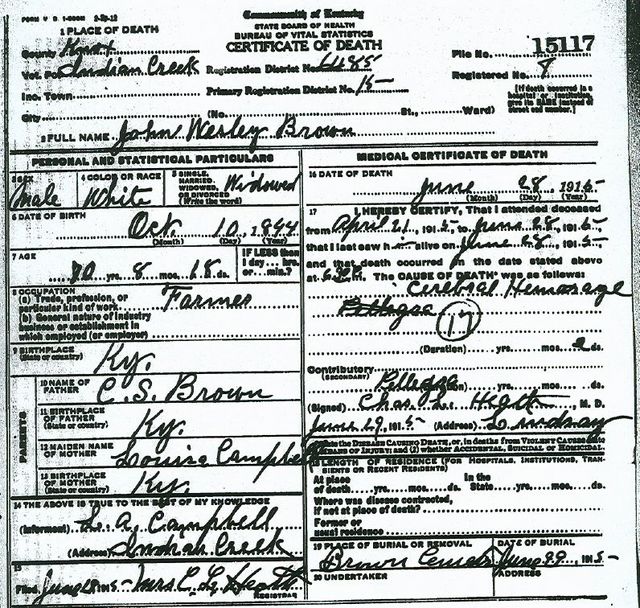 Commonwealth of Kentucky
STATE BOARD OF HEALTH
BUREAU OF VITAL STATISTICS
CERTIFICATE OF DEATH
1 PLACE OF DEATH
County Knox
Vot. Pct Indian Creek
Inc. Town
City
Registration District No. 6485
Primary Registration District No. 15
(No. St., Ward)
File No. 15117
Registered No. 8
[If death occurred in a hospital or institution, give its NAME instead of street and number.]
2 FULL NAME John Wesley Brown
PERSONAL AND STATISTICAL PARTICULARS
3 SEX Male
4 COLOR OR RACE White
5 SINGLE, MARRIED, WIDOWED, OR DIVORCED (Write the word) Widowed
6 DATE OF BIRTH
Oct. 10, 1844
(Month) (Day) (Year)
7 AGE
70 yrs. 8 mos. 18 ds.
IF LESS than 1 day.... hrs. or.... min.?
8 OCCUPATION Farmer
(a) Trade, profession, or particular kind of work
(b) General nature of industry business or establishment in which employed (or employer)
9 BIRTHPLACE
(State or country) Ky.
PARENTS
10 NAME OF FATHER C. S. Brown
11 BIRTHPLACE OF FATHER (State or country) Ky.
12 MAIDEN NAME OF MOTHER Louisa Campbell
13 BIRTHPLACE OF MOTHER (State or country) Ky.
14 THE ABOVE IS TRUE TO THE BEST OF MY KNOWLEDGE
(Informant) L. A. Campbell
(Address) Indian Creek
15
Filed June 28 1915 Mrs. C. L. Heath
REGISTRAR
MEDICAL CERTIFICATE OF DEATH
16 DATE OF DEATH
June 28, 1915
(Month) (Day) (Year)
17 I HEREBY CERTIFY, That I attended deceased
from April 21, 1915, to June 28, 1915,
that I last saw h alive on June 28, 1915
and that death occurred in the date stated above
at m. The CAUSE OF DEATH* was as follows:
Cerebral Hemorage
17
(Duration) yrs. mos. 2 ds.
Contributory
(SECONDARY)
yrs. mos. ds.
(Signed) Chas. L. Heath, M. D.
June 29, 1915 (Address) Lindsay
State the DISEASE CAUSING DEATH, or, in deaths from VIOLENT CAUSES state
MEANS OF INJURY; and (2) whether ACCIDENTAL, SUICIDAL OR HOMICIDAL.
18 LENGTH OF RESIDENCE (FOR HOSPITALS, INSTITUTIONS, TRANSIENTS OR RECENT RESIDENTS)
At place of death yrs. mos. ds. In the State yrs. mos. ds.
Where was disease contracted,
if not at place of death?
Former or
usual residence
19 PLACE OF BURIAL OR REMOVAL
Brown
DATE OF BURIAL
June 29 1915
20 UNDERTAKER
ADDRESS